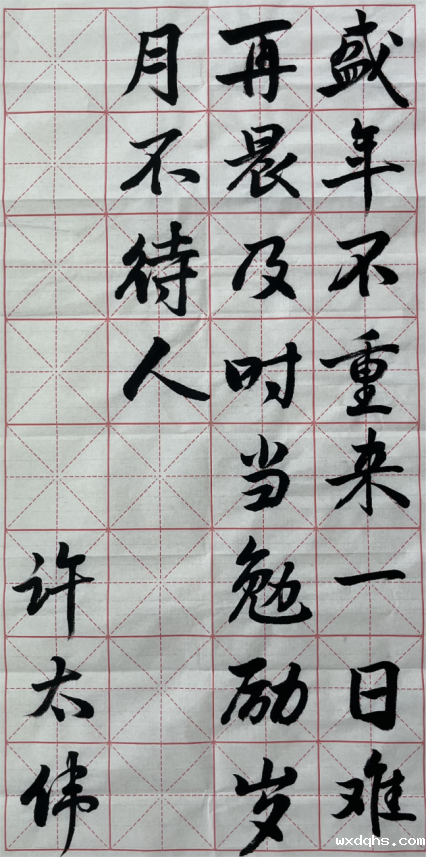 盛年不重来一日难
再晨及时当勉励岁
月不待人
许太伟
wxdqhs.com